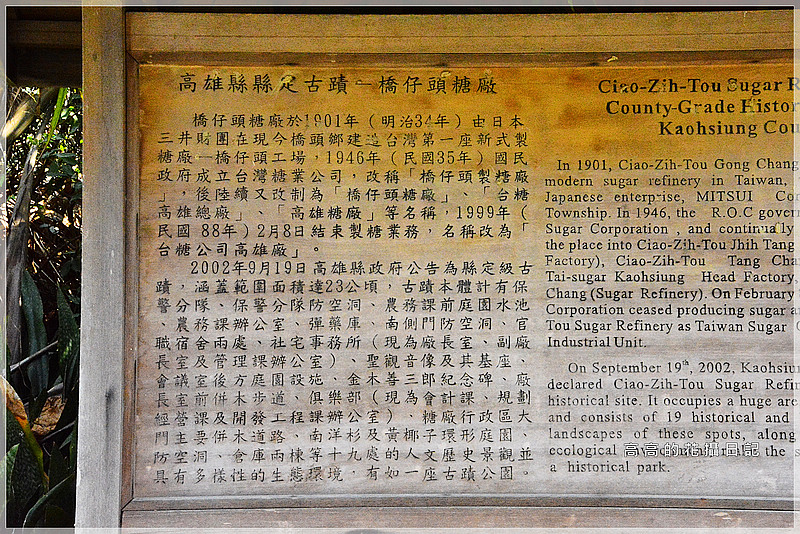 高雄縣縣定古蹟—橋仔頭糖廠
橋仔頭糖廠於1901年（明治34年）由日本
三井財團在現今橋頭鄉建造台灣第一座新式製
糖廠—橋仔頭工場，1946年（民國35年）國民
政府成立台灣糖業公司，改稱「橋仔頭製糖廠
」，後陸續又改制為「橋仔頭糖廠」、「台糖
高雄總廠」、「高雄糖廠」等名稱，1999年（
民國 88年）2月8日結束製糖業務，名稱改為「
台糖公司高雄廠」。
2002年9月19日高雄縣政府公告為縣定級古
蹟，涵蓋範圍面積達23公頃，古蹟本體計有保
警分隊、保警分隊防空洞、農務課前庭園水池
、農務課辦公室、彈藥庫、南側門防空洞、官
職宿舍兩處、社宅事務所（現為廠長室、副廠
長室及管理課辦公室）、聖觀音像及其基座、
會議室後方庭園設施、金木善三郎紀念碑、廠
長室前併木步道、俱樂部（現為會計課、規劃
經營課及開發工程課辦公室）、糖廠行政區大
門主要併木道路、南洋杉及黃椰子環形庭園、
防空洞、倉庫兩棟等十九處的人文歷史景觀並
具有多樣性的生態環境，有如一座古蹟公園。
Ciao-Zih-Tou Sugar R
County-Grade Histor
Kaohsiung Cou
In 1901, Ciao-Zih-Tou Gong Chang
modern sugar refinery in Taiwan,
Japanese enterprise, MITSUI Co
Township. In 1946, the R.O.C gover
Sugar Corporation , and continually
the place into Ciao-Zih-Tou Jhih Tang
Factory), Ciao-Zih-Tou Tang Cha
Tai-sugar Kaohsiung Head Factory,
Chang (Sugar Refinery). On February
Corporation ceased producing sugar a
Tou Sugar Refinery as Taiwan Sugar
Industrial Unit.
On September 19th, 2002, Kaohsiu
declared Ciao-Zih-Tou Sugar Refin
historical site. It occupies a huge are
and consists of 19 historical and
landscapes of these spots, along
ecological the s
a historical park.
高高的花攝日記